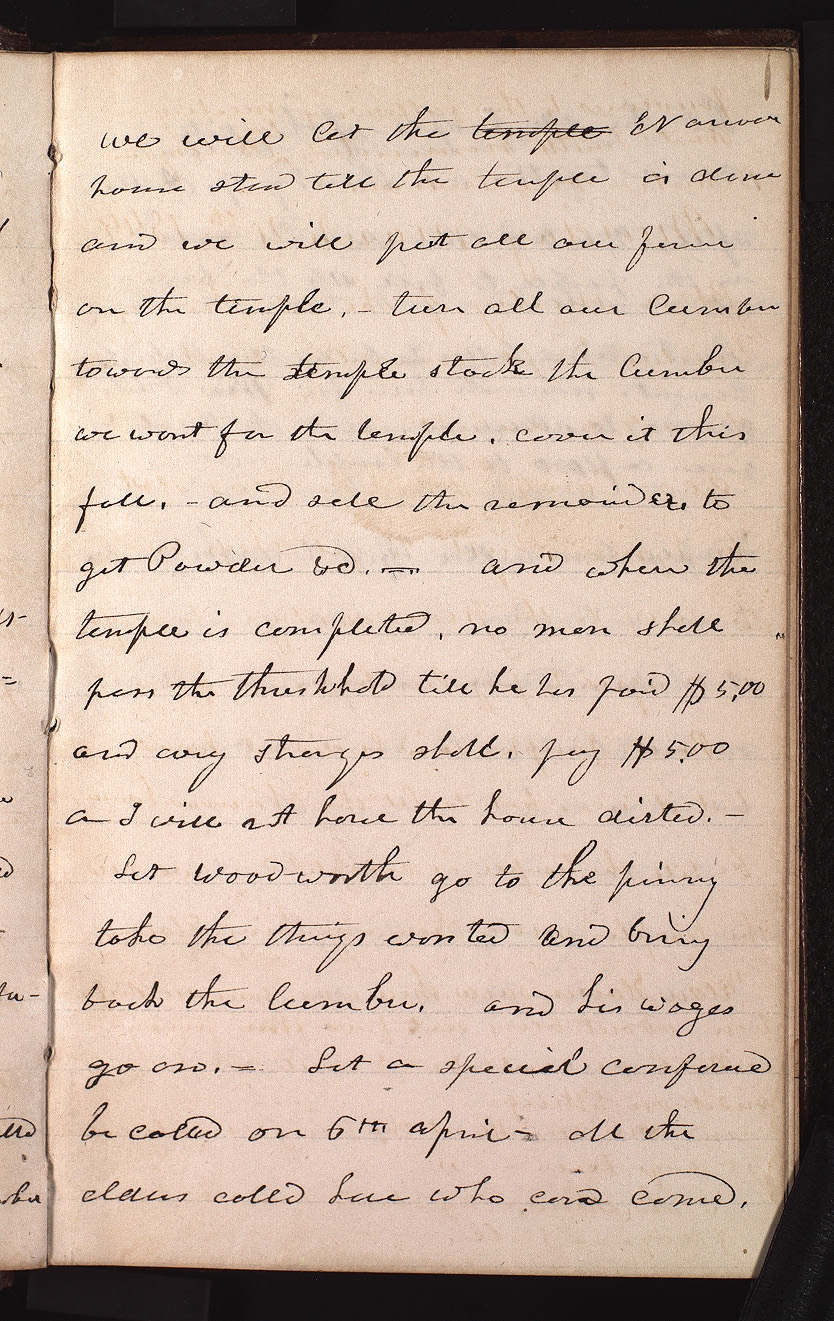 we will let the temple Nauvoo
house stand till the temple is done
and we will put all our forces
on the temple. - turn all our lumber
towards the temple stock the lumber
we want for the temple. cover it this
fall. - and sell the remainder. to
get Powder &c. — and when the
temple is completed, no man shall
pass the threshhold till he has paid $5,00
and every stranger shall. pay $5.00
I will not have the house dirted. -
Let woodworth go to the pinery
take the things wanted and bring
back the lumber. and his wages
go on. = Let a special conference
be called on 6th april - all the
elders called here who can come.